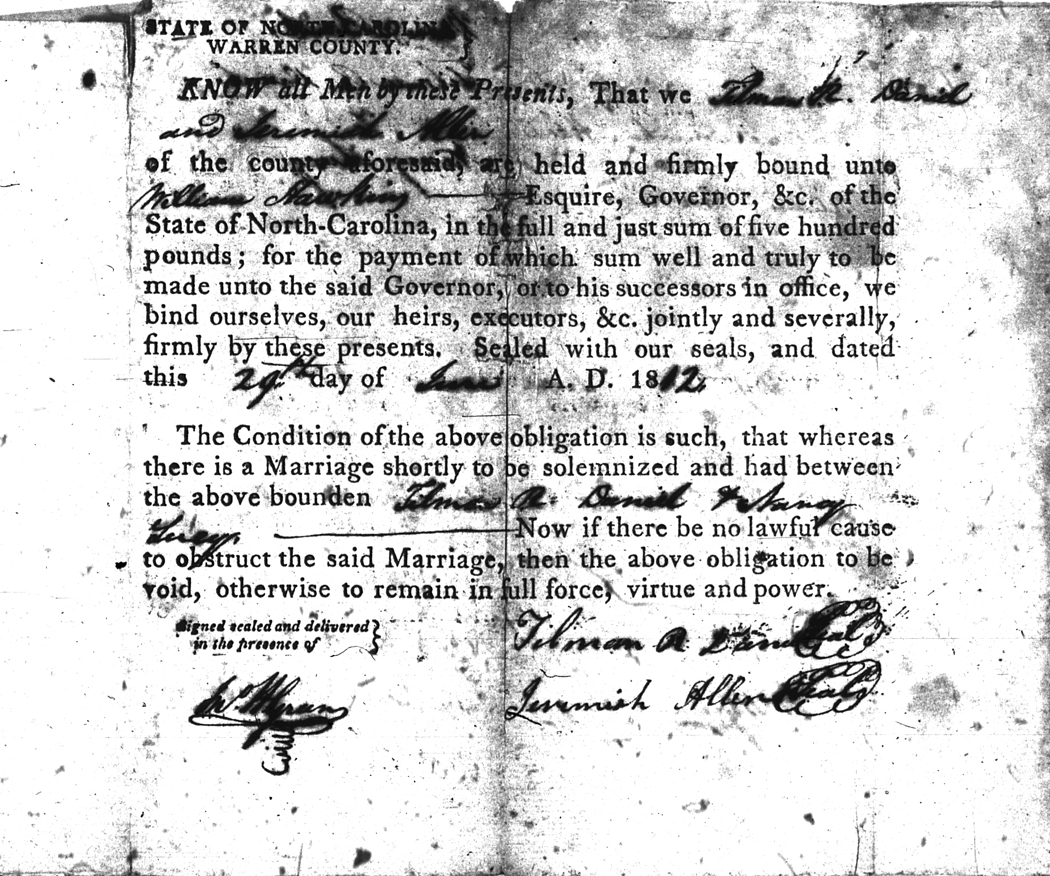 STATE OF NORTH-CAROLINA
WARREN COUNTY.
KNOW all Men by these Presents, That we Tilman R. Daniel
and Jeremiah Allen
of the county aforesaid, are held and firmly bound unto
William Hawkins Esquire, Governor, &c. of the
State of North-Carolina, in the full and just sum of five hundred
pounds; for the payment of which sum well and truly to be
made unto the said Governor, or to his successors in office, we
bind ourselves, our heirs, executors, &c. jointly and severally,
firmly by these presents. Sealed with our seals, and dated
this 29th day of June A. D. 1812,
The Condition of the above obligation is such, that whereas
there is a Marriage shortly to be solemnized and had between
the above bounden Tilman R Daniel & Nancy
Now if there be no lawful cause
to obstruct the said Marriage, then the above obligation to be
void, otherwise to remain in full force, virtue and power.
Signed sealed and delivered
in the presence of
Tilman R Daniel (Seal)
Jeremiah Allen (Seal)